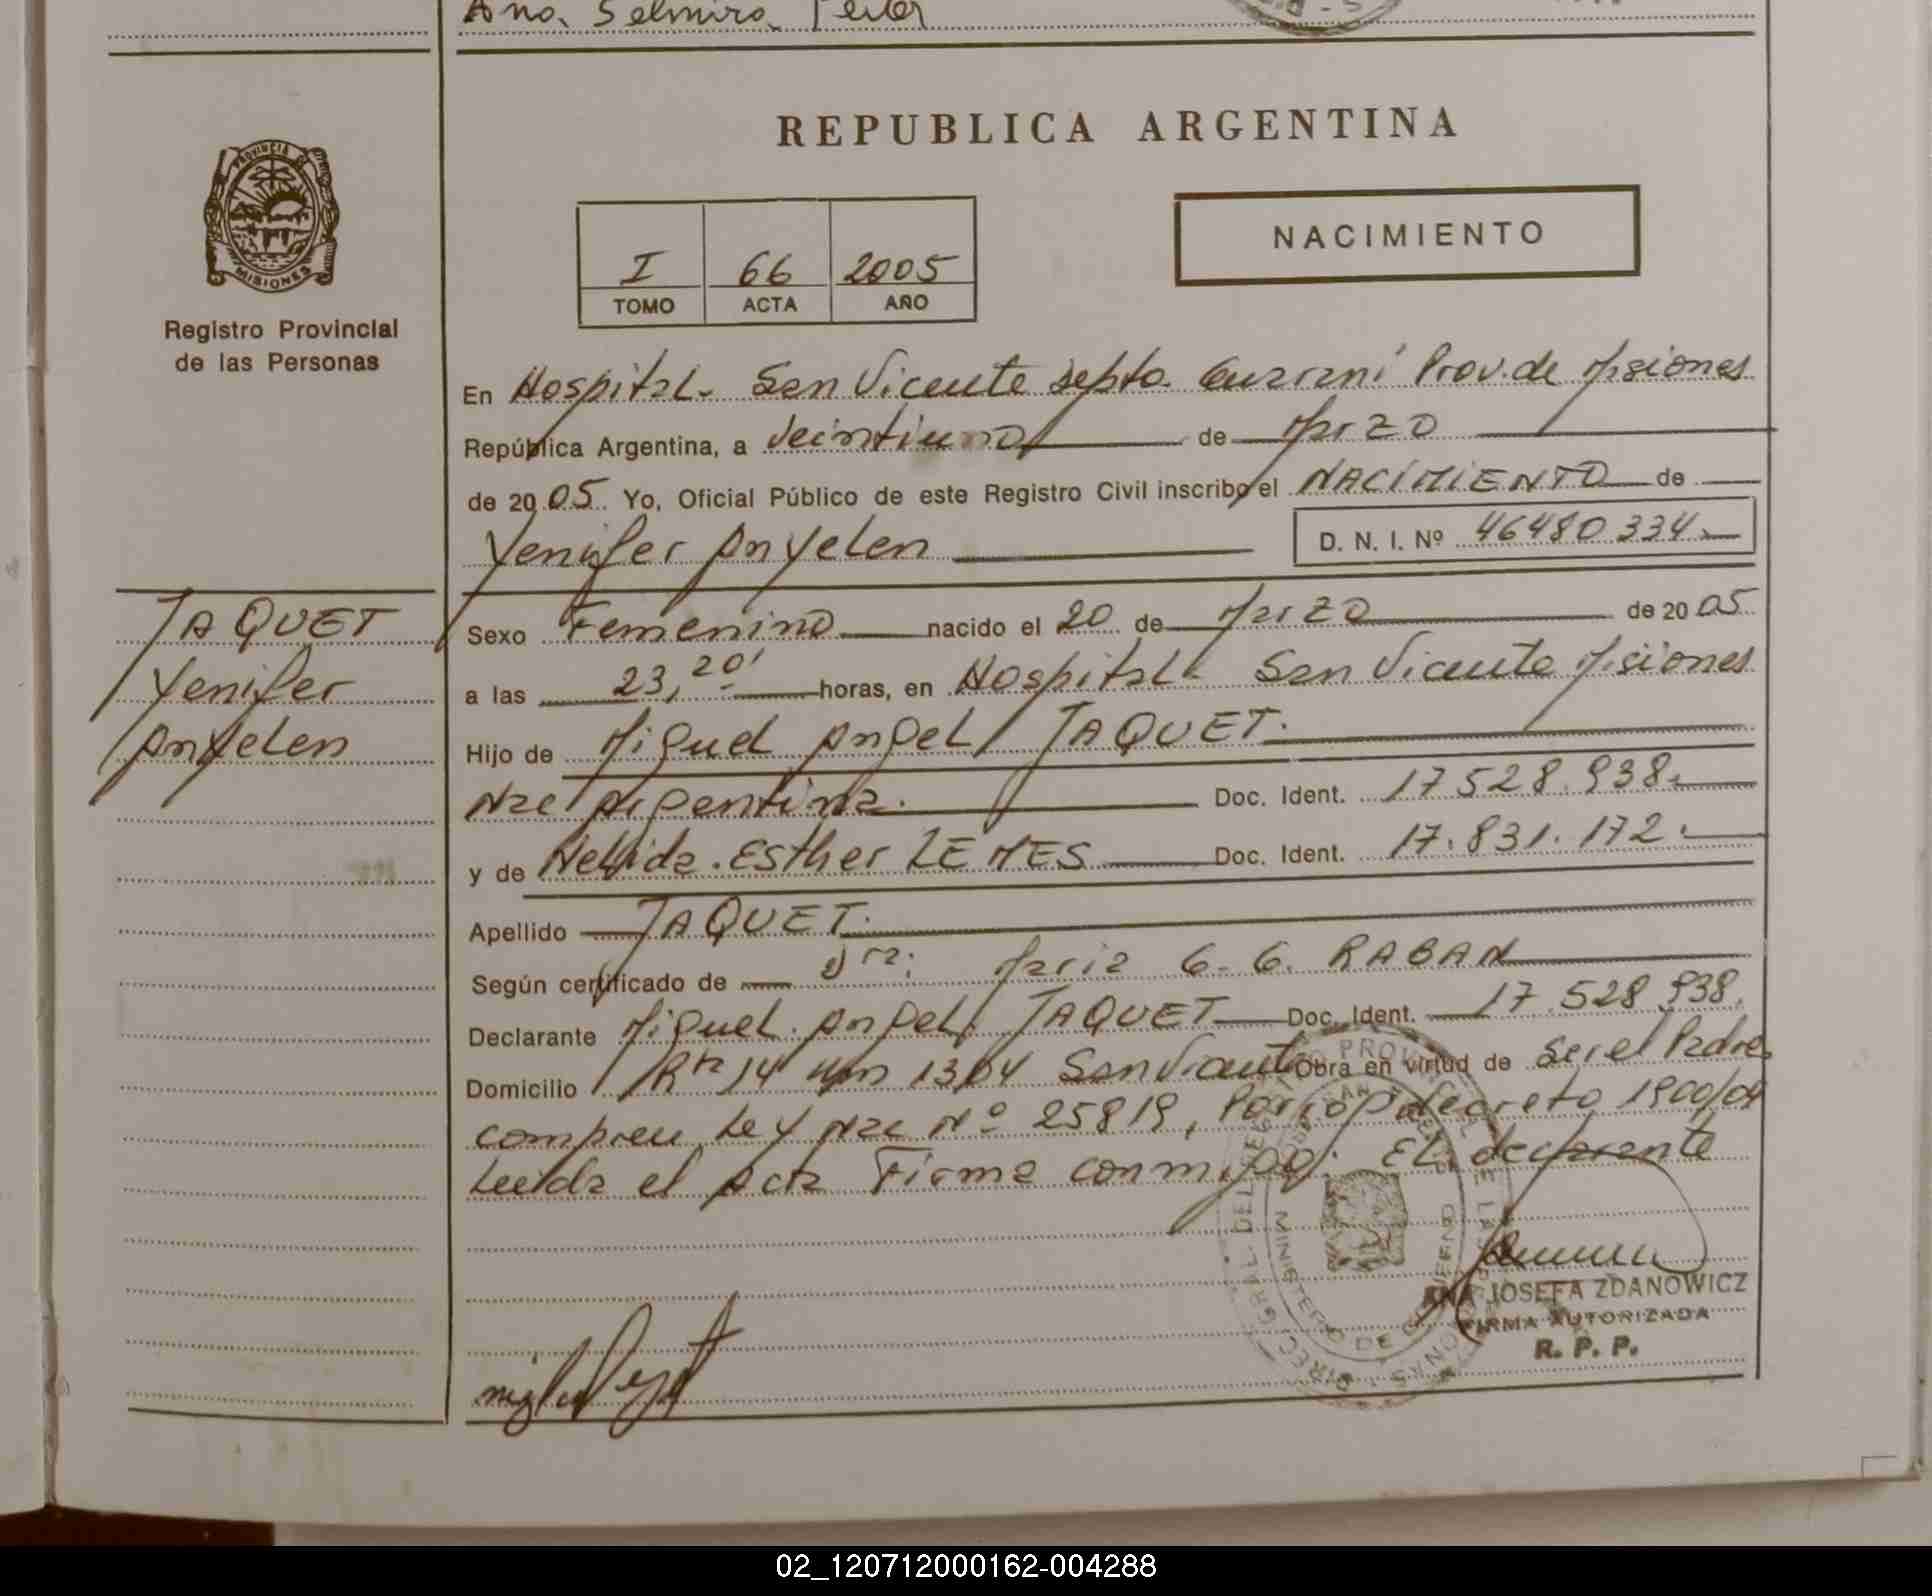 Ana. Selmira.
REPUBLICA ARGENTINA
NACIMIENTO
I 66 2005
TOMO ACTA AÑO
PROVINCIA DE
MISIONES
Registro Provincial
de las Personas
En Hospital. San Vicente Depto. Guaraní Prov. de Misiones
República Argentina, a Veintiuno de Marzo
de 20 05. Yo, Oficial Público de este Registro Civil inscribo el NACIMIENTO de
Yenifer Anyelen D. N. I. Nº 46480334
JAQUET
Yenifer
Anyelen
Sexo Femenino nacido el 20 de Marzo de 20 05
a las 23,20' horas, en Hospital San Vicente Misiones
Hijo de Miguel Angel JAQUET.
Nac Argentina. Doc. Ident. 17528.938.
y de Nelida. Esther LEMES Doc. Ident. 17.831.172.
Apellido JAQUET.
Según certificado de Dra: Maria G. G. RABAN
Declarante Miguel. Angel. JAQUET Doc. Ident. 17.528.938.
Domicilio Rta 14 Km 1304 San Vicente Obra en virtud de Ser el Padre
Ley Nac Nº 25819, decreto 1900/04
Leida el Acta Firma conmigo. El declarante
ANA JOSEFA ZDANOWICZ
FIRMA AUTORIZADA
R. P. P.
MINISTERIO DE GOBIERNO
02_120712000162-004288